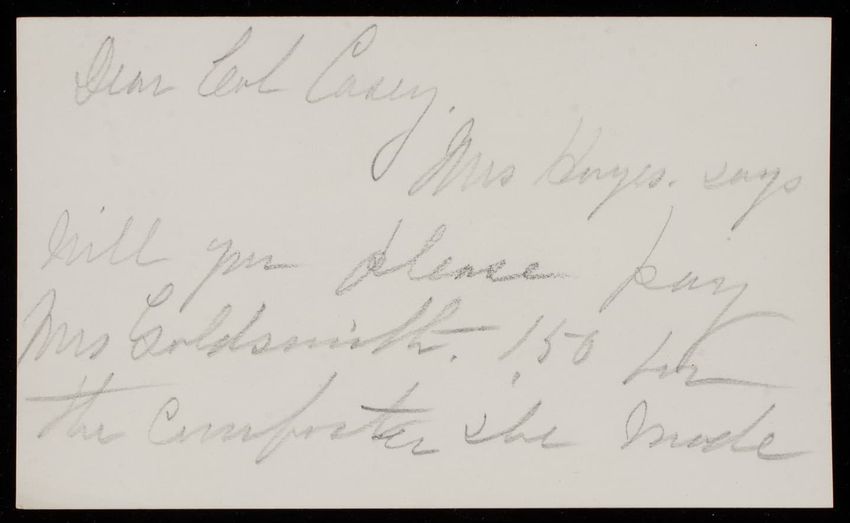 Dear Col Casey.
Mrs Hayes. says
will you please pay
Mrs Goldsmith. 1.50 for
the Comforter she made